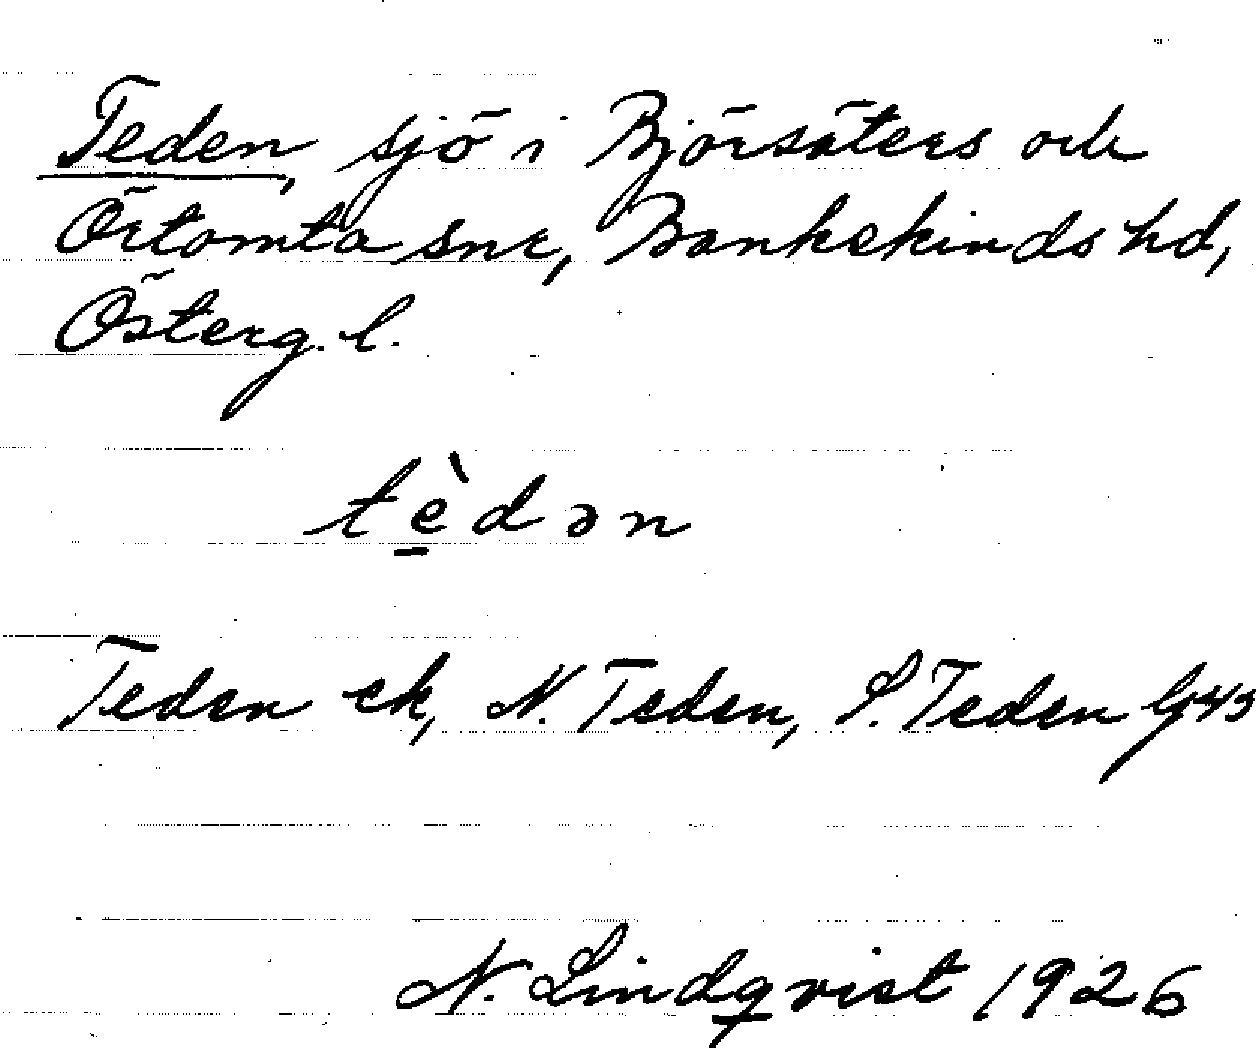 Teden, sjö i Björsäters och
Örtomta snr, Bankekinds hd,
Österg. l.
tèdən
Teden ek, N. Teden, S. Teden Gj43
N. Lindqvist 1926